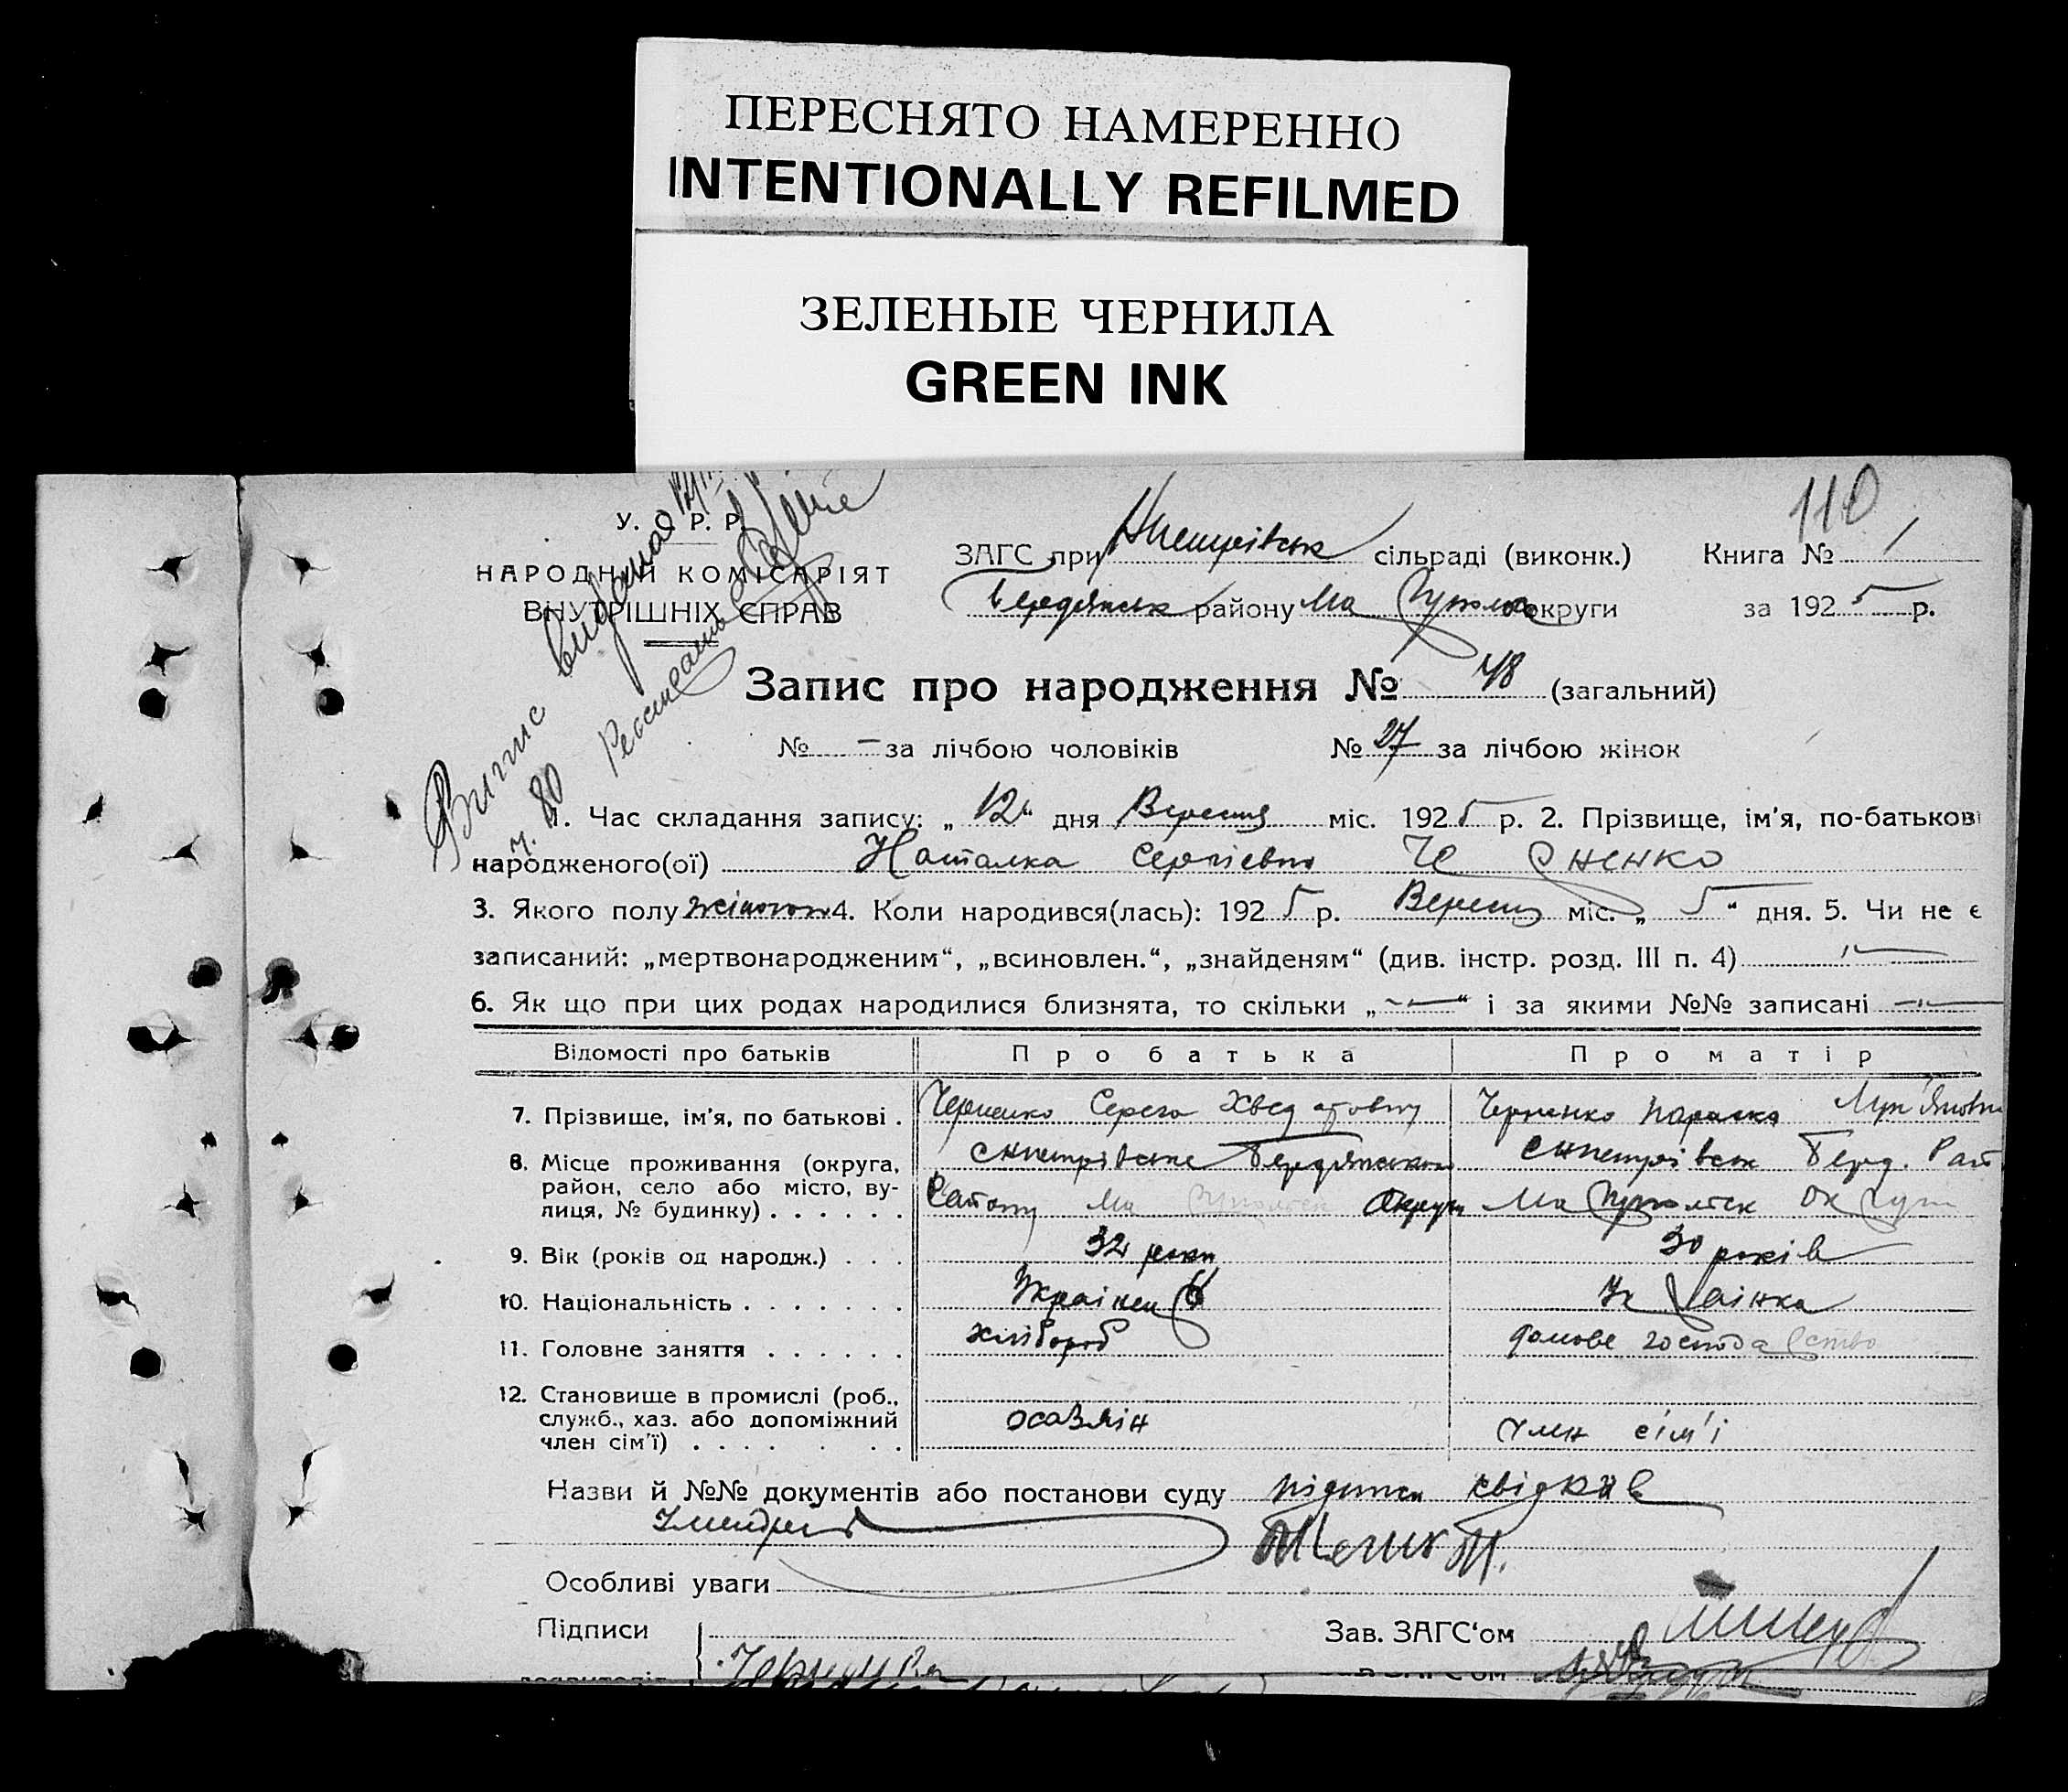 ПЕРЕСНЯТО НАМЕРЕННО
INTENTIONALLY REFILMED
ЗЕЛЕНЫЕ ЧЕРНИЛА
GREEN INK
110
У. Р. Р.
НАРОДНИЙ КОМІСАРІЯТ
ВНУТРІШНІХ СПРАВ
Випис видана
ч. 80
ЗАГС при сільраді (виконк.) Книга № 1
Бердянськ району Маріупольск округи за 1925 р.
Запис про народження № 48 (загальний)
№ — за лічбою чоловіків № 27 за лічбою жінок
1. Час складання запису: „12“ дня Вересня міс. 1925 р. 2. Прізвище, ім'я, по-батькові
народженого(ої) Наталка Сергієвна Черненко
3. Якого полу жіночого 4. Коли народився(лась): 1925 р. Вересня міс. „5“ дня. 5. Чи не є
записаний: „мертвонародженим“, „всиновлен.“, „знайденям“ (див. інстр. розд. III п. 4) —
6. Як що при цих родах народилися близнята, то скільки „—“ і за якими №№ записані —
Відомості про батьків Про батька Про матір
7. Прізвище, ім'я, по батькові . Черненко Черненко Параска Лук'яновна
8. Місце проживання (округа, район, село або місто, вулиця, № будинку) . . . . . . Бердянського Району Маріупольск Округи Берд. Рай Маріупольск Округи
9. Вік (років од народж.) . . . 32 роки 30 років
10. Національність . . . . . . . Українець Українка
11. Головне заняття . . . . . . хлібороб домове господарство
12. Становище в промислі (роб., служб., хаз. або допоміжний член сім'ї) . . . . . . . член сім'ї
Назви й №№ документів або постанови суду підписи свідків
Особливі уваги
Підписи Зав. ЗАГС'ом